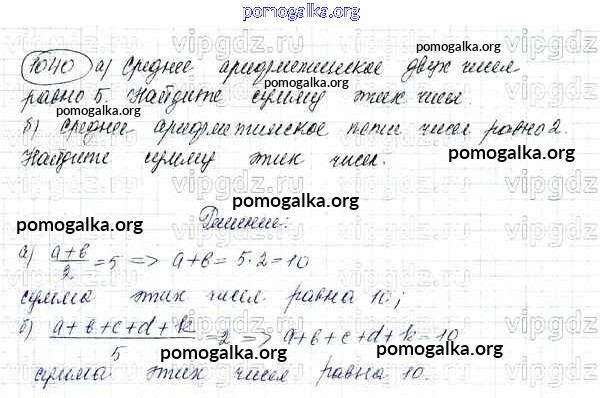 pomogalka.org
1040 а) Среднее арифметическое двух чисел
pomogalka.org
равно 5. Найдите сумму этих чисел.
б) Среднее арифметическое пяти чисел равно 2.
Найдите сумму этих чисел.
pomogalka.org
pomogalka.org
pomogalka.org
Решение:
а) (a+b)/2 = 5 => a+b = 5·2 = 10
pomogalka.org
сумма этих чисел равна 10;
б) (a+b+c+d+k)/5 = 2 => a+b+c+d+k = 10
pomogalka.org
pomogalka.org
сумма этих чисел равна 10.
vipgdz.ru